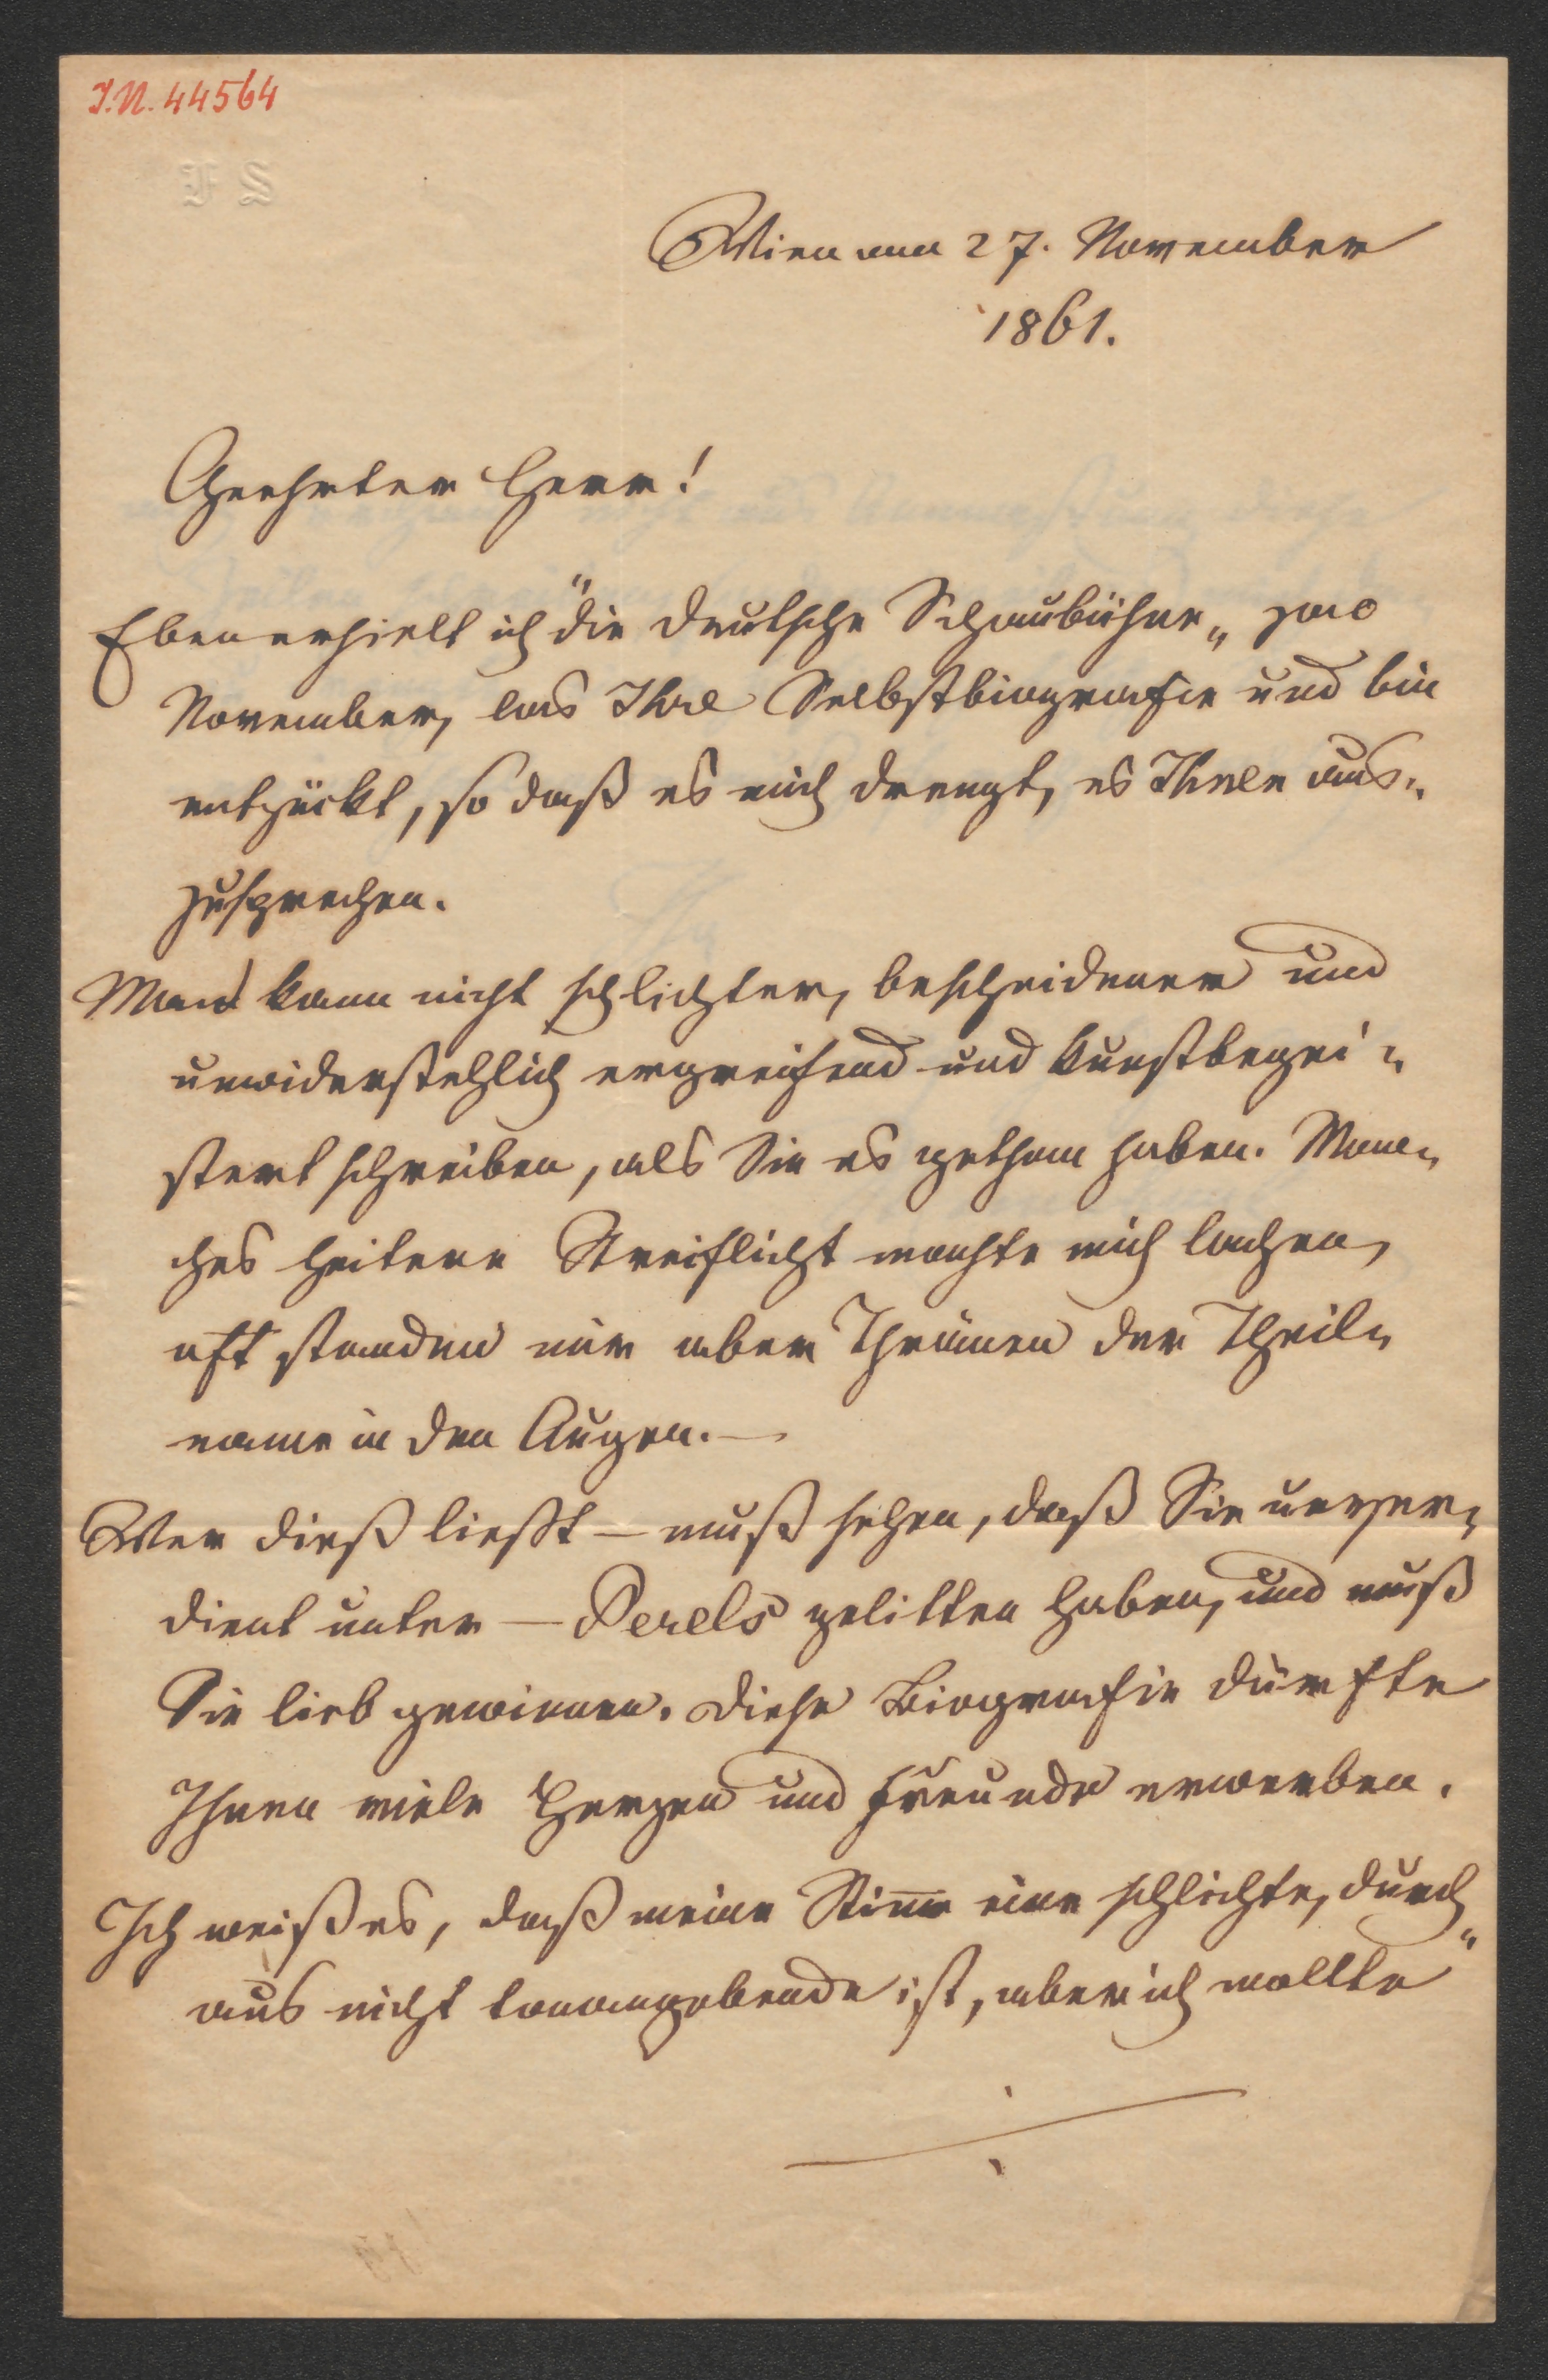 I.N. 44564
F S
Wien am 27. November
1861.
Geehrter Herr!
Eben erhielt ich "die deutsche Schaubühne„ pro
November, las Ihre Selbstbiografie und bin
entzückt, so daß es mich drengt, es Ihnen aus„
zusprechen.
Man kann nicht schlichter, bescheidener und
unwiderstehlich ergreifend und kunstbegei„
stert schreiben, als Sie es gethan haben. Man„
ches heitere Streiflicht machte mich lachen,
oft standen mir aber Thränen der Theil„
name in den Augen. —
Wer dieß ließt — muß sehen, daß Sie unver„
dient unter — Perels gelitten haben, und muß
Sie lieb gewinnen. Diese Biografie dürfte
Ihnen viele Herzen und Freunde erwerben.
Ich weiß es, daß meine Stimme eine schlichte, durch„
aus nicht tonangebende ist, aber ich wollte